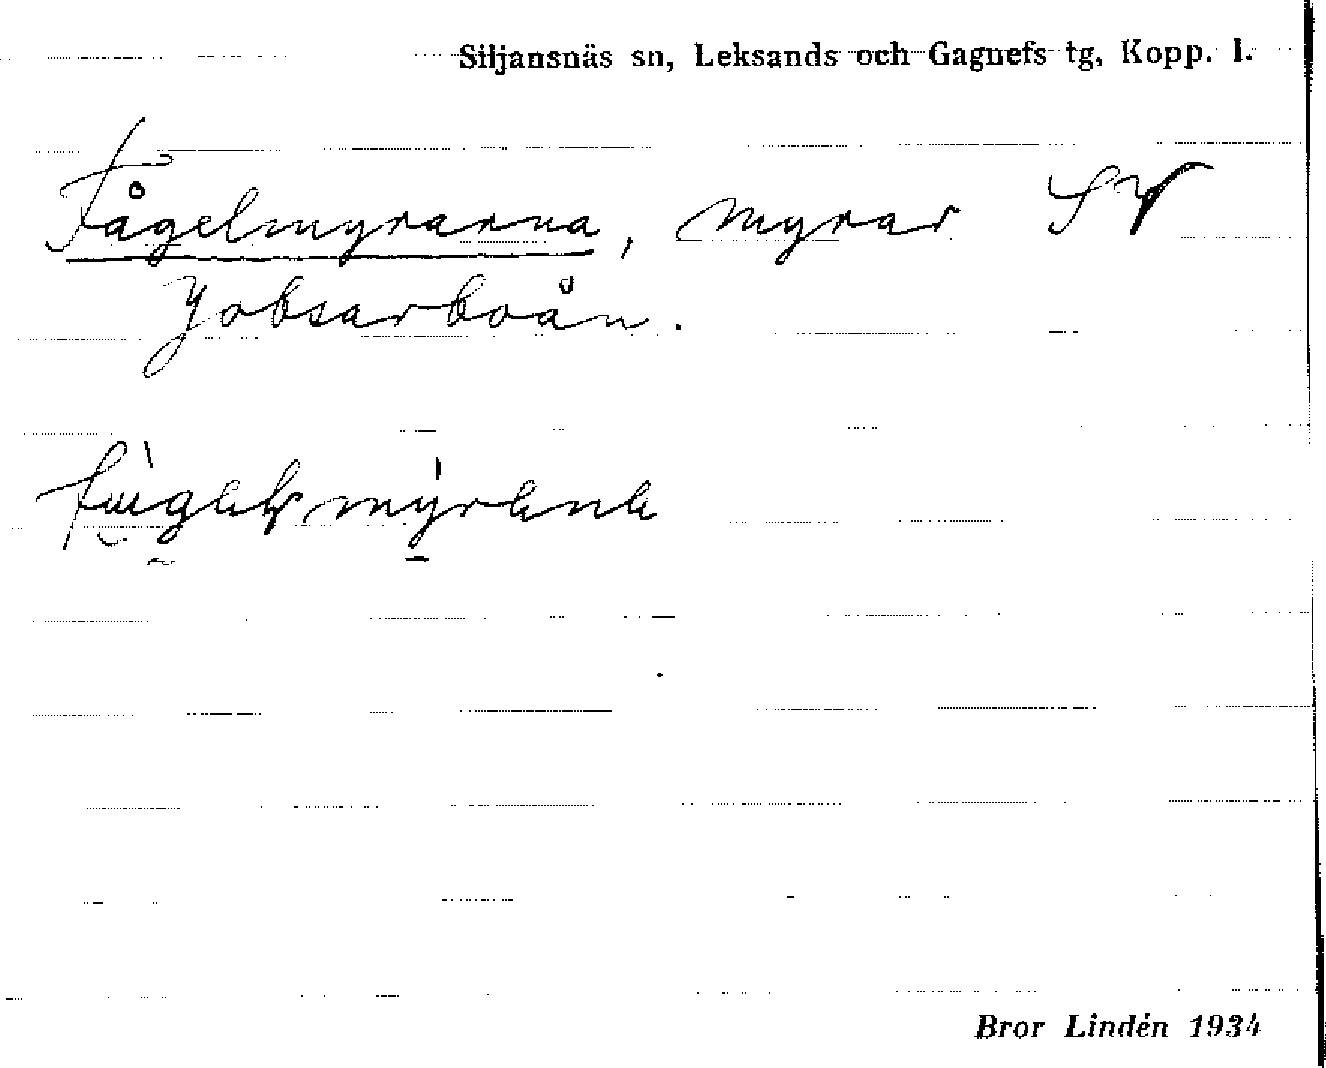 Siljansnäs sn, Leksands och Gagnefs tg, Kopp. l.
Fågelmyrarna, myrar SV
Jobsarboån.
Bror Lindén 1934